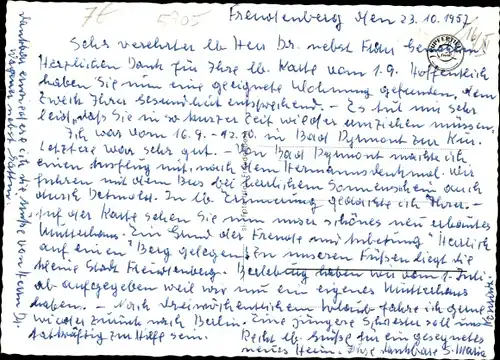 Freudenberg den 23.10.1957
Sehr verehrter lb. Herr Dr. nebst Frau Gemahlin!
Herzlichen Dank für Ihre lb. Karte vom 1.9. Hoffentlich
haben Sie nun eine geeignete Wohnung gefunden, dem
Zweck Ihrer Gesundheit entsprechend. – Es tut mir sehr
leid, daß Sie in so kurzer Zeit wieder umziehen müssen.
Ich war vom 16.9. - 12.10. in Bad Pyrmont zur Kur.
Letztere war sehr gut. – Von Bad Pyrmont machte ich
einen Ausflug mit, nach dem Hermannsdenkmal. Wir
fuhren mit dem Bus bei herrlichem Sonnenschein auch
durch Detmold. In lb. Erinnerung gedachte ich Ihrer. –
Auf der Karte sehen Sie nun unser schönes neu erbautes
Mutterhaus. Ein Grund der Freude und Anbetung. Herrlich
auf einem Berg gelegen, unseren Füßen liegt die
kleine Stadt Freudenberg. Berleburg haben wir vom 1. Juli
ab aufgegeben weil wir nun ein eigenes Mutterhaus
haben. – Nach dreiwöchentlichem Urlaub fahre ich gerne
wieder zurück nach Berlin. Eine jüngere Schwester soll uns
tatkräftig zur Hilfe sein.
Recht lb. Grüße für ein gesegnetes
neues Heim. Ihre dankbare S. Maria
Dankbar erwidere ich die Grüße von Herrn Dr.
nebst Gattin.